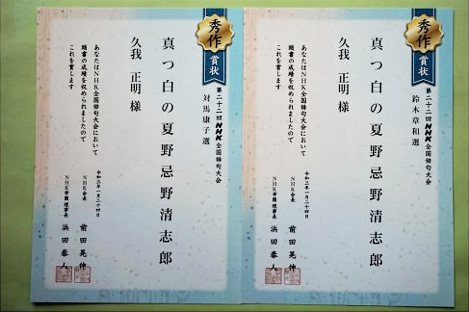 秀作
賞状
第二十二回NHK全国俳句大会
鈴木章和選
真つ白の夏野忌野清志郎
久我 正明 様
あなたはNHK全国俳句大会において
頭書の成績を収められましたので
これを賞します
令和三年一月二十四日
NHK会長 前田晃伸
NHK学園理事長 浜田泰人
秀作
賞状
第二十二回NHK全国俳句大会
対馬康子選
真つ白の夏野忌野清志郎
久我 正明 様
あなたはNHK全国俳句大会において
頭書の成績を収められましたので
これを賞します
令和三年一月二十四日
NHK会長 前田晃伸
NHK学園理事長 浜田泰人